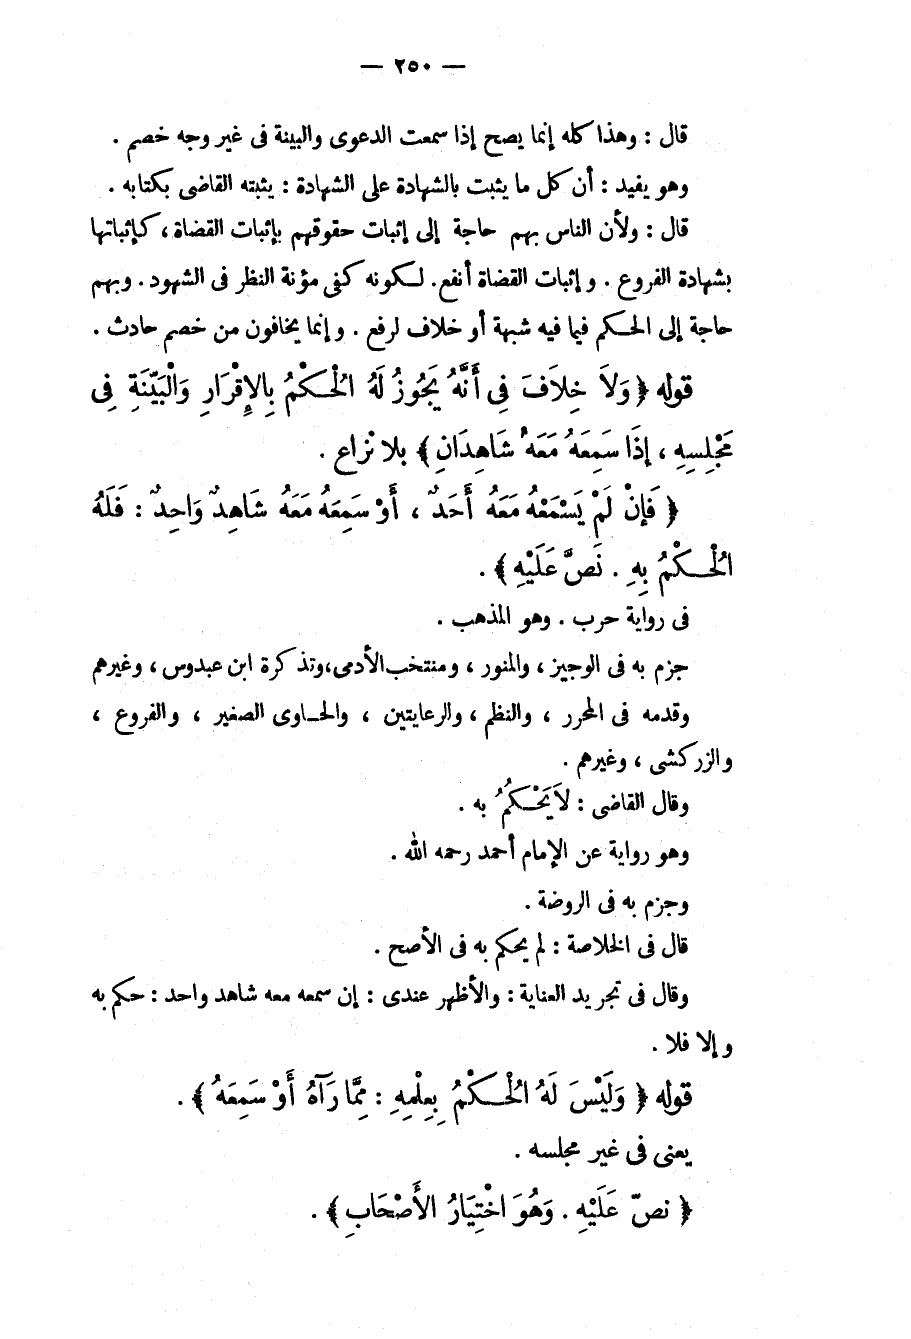 — ٢٥٠ —
قال : وهذا كله إنما يصح إذا سمعت الدعوى والبينة فى غير وجه خصم .
وهو يفيد : أن كل ما يثبت بالشهادة على الشهادة : يثبته القاضى بكتابه .
قال : ولأن الناس بهم حاجة إلى إثبات حقوقهم بإثبات القضاة ، كإثباتها
بشهادة الفروع . وإثبات القضاة أنفع . لكونه كفى مؤنة النظر فى الشهود . وبهم
حاجة إلى الحكم فيما فيه شبهة أو خلاف لرفع . وإنما يخافون من خصم حادث .
قوله ﴿ وَلَا خِلَافَ فِى أَنَّهُ يَجُوزُ لَهُ الْحُكْمُ بِالإِقْرَارِ وَالْبَيِّنَةِ فِى
مَجْلِسِهِ ، إِذَا سَمِعَهُ مَعَهُ شَاهِدَانِ ﴾ بلا نزاع .
﴿ فَإِنْ لَمْ يَسْمَعْهُ مَعَهُ أَحَدٌ ، أَوْ سَمِعَهُ مَعَهُ شَاهِدٌ وَاحِدٌ : فَلَهُ
الْحُكْمُ بِهِ . نَصَّ عَلَيْهِ ﴾ .
فى رواية حرب . وهو المذهب .
جزم به فى الوجيز ، والمنور ، ومنتخب الأدمى ، وتذكرة ابن عبدوس ، وغيرهم
وقدمه فى المحرر ، والنظم ، والرعايتين ، والحاوى الصغير ، والفروع ،
والزركشى ، وغيرهم .
وقال القاضى : لَا يَحْكُمُ به .
وهو رواية عن الإمام أحمد رحمه الله .
وجزم به فى الروضة .
قال فى الخلاصة : لم يحكم به فى الأصح .
وقال فى تجريد العناية : والأظهر عندى : إن سمعه معه شاهد واحد : حكم به
وإلا فلا .
قوله ﴿ وَلَيْسَ لَهُ الْحُكْمُ بِعِلْمِهِ : مِمَّا رَآهُ أَوْ سَمِعَهُ ﴾ .
يعنى فى غير مجلسه .
﴿ نصّ عَلَيْهِ . وَهُوَ اخْتِيَارُ الأَصْحَابِ ﴾ .